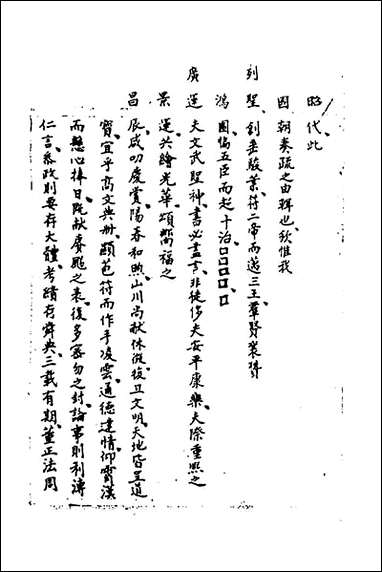 昭代此
國朝奏疏之由輯也欽惟我
列聖創垂駿業符二帝而邁三王羣賢襄贊
鴻圖協五臣而起十治□□□□□
廣運夫文武聖神書必盡言非徒侈夫安平康樂夫際重熙之
景運共繪光華頌嚮福之
昌辰咸叨慶賞陽春和煦山川尚獻休徵復旦文明天地皆呈道
寶宜乎高文典冊顯苞符而作手凌雲通德達情仰霄漢
而懸心捧日旣獻賡颺之表復多密勿之封論事則利溥
仁言恭政則要存大體考績存舜典三載有期董正法周